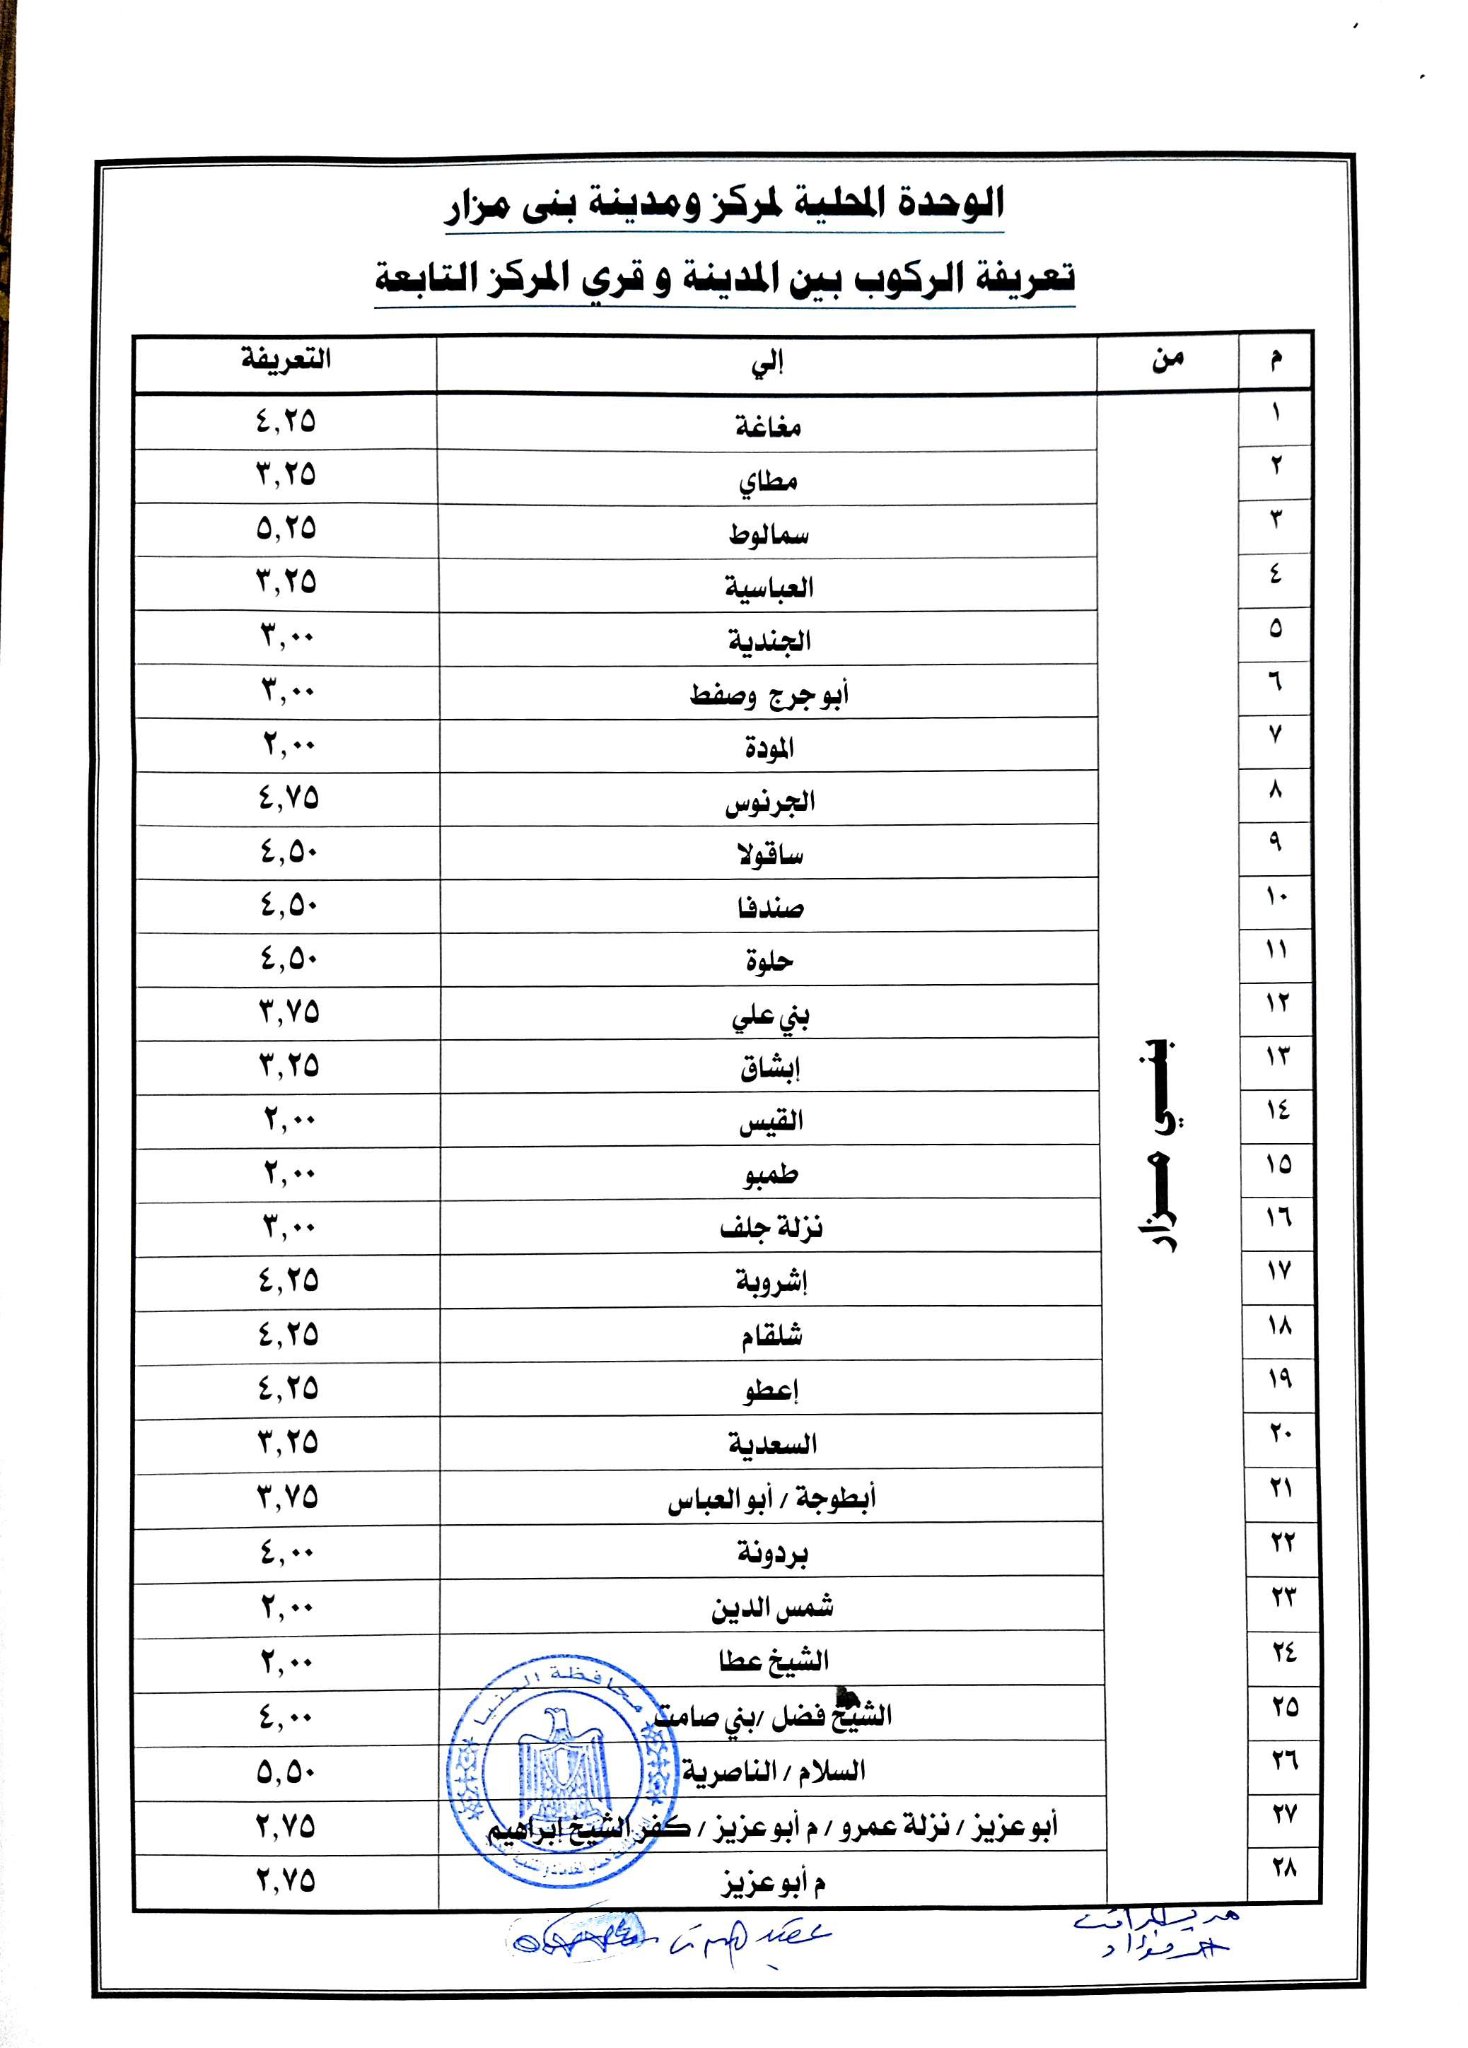 الوحدة المحلية لمركز ومدينة بنى مزار
تعريفة الركوب بين المدينة و قري المركز التابعة
م من إلي التعريفة
بنـــي مـــزار
١ مغاغة ٤,٢٥
٢ مطاي ٣,٢٥
٣ سمالوط ٥,٢٥
٤ العباسية ٣,٢٥
٥ الجندية ٣,٠٠
٦ أبو جرج وصفط ٣,٠٠
٧ المودة ٢,٠٠
٨ الجرنوس ٤,٧٥
٩ ساقولا ٤,٥٠
١٠ صندفا ٤,٥٠
١١ حلوة ٤,٥٠
١٢ بني علي ٣,٧٥
١٣ إبشاق ٣,٢٥
١٤ القيس ٢,٠٠
١٥ طمبو ٢,٠٠
١٦ نزلة جلف ٣,٠٠
١٧ إشروبة ٤,٢٥
١٨ شلقام ٤,٢٥
١٩ إعطو ٤,٢٥
٢٠ السعدية ٣,٢٥
٢١ أبطوجة / أبو العباس ٣,٧٥
٢٢ بردونة ٤,٠٠
٢٣ شمس الدين ٢,٠٠
٢٤ الشيخ عطا ٢,٠٠
٢٥ الشيخ فضل /بني صامت ٤,٠٠
٢٦ السلام / الناصرية ٥,٥٠
٢٧ أبو عزيز / نزلة عمرو / م أبو عزيز / كفر الشيخ إبراهيم ٢,٧٥
٢٨ م أبو عزيز ٢,٧٥
محافظة المنيا